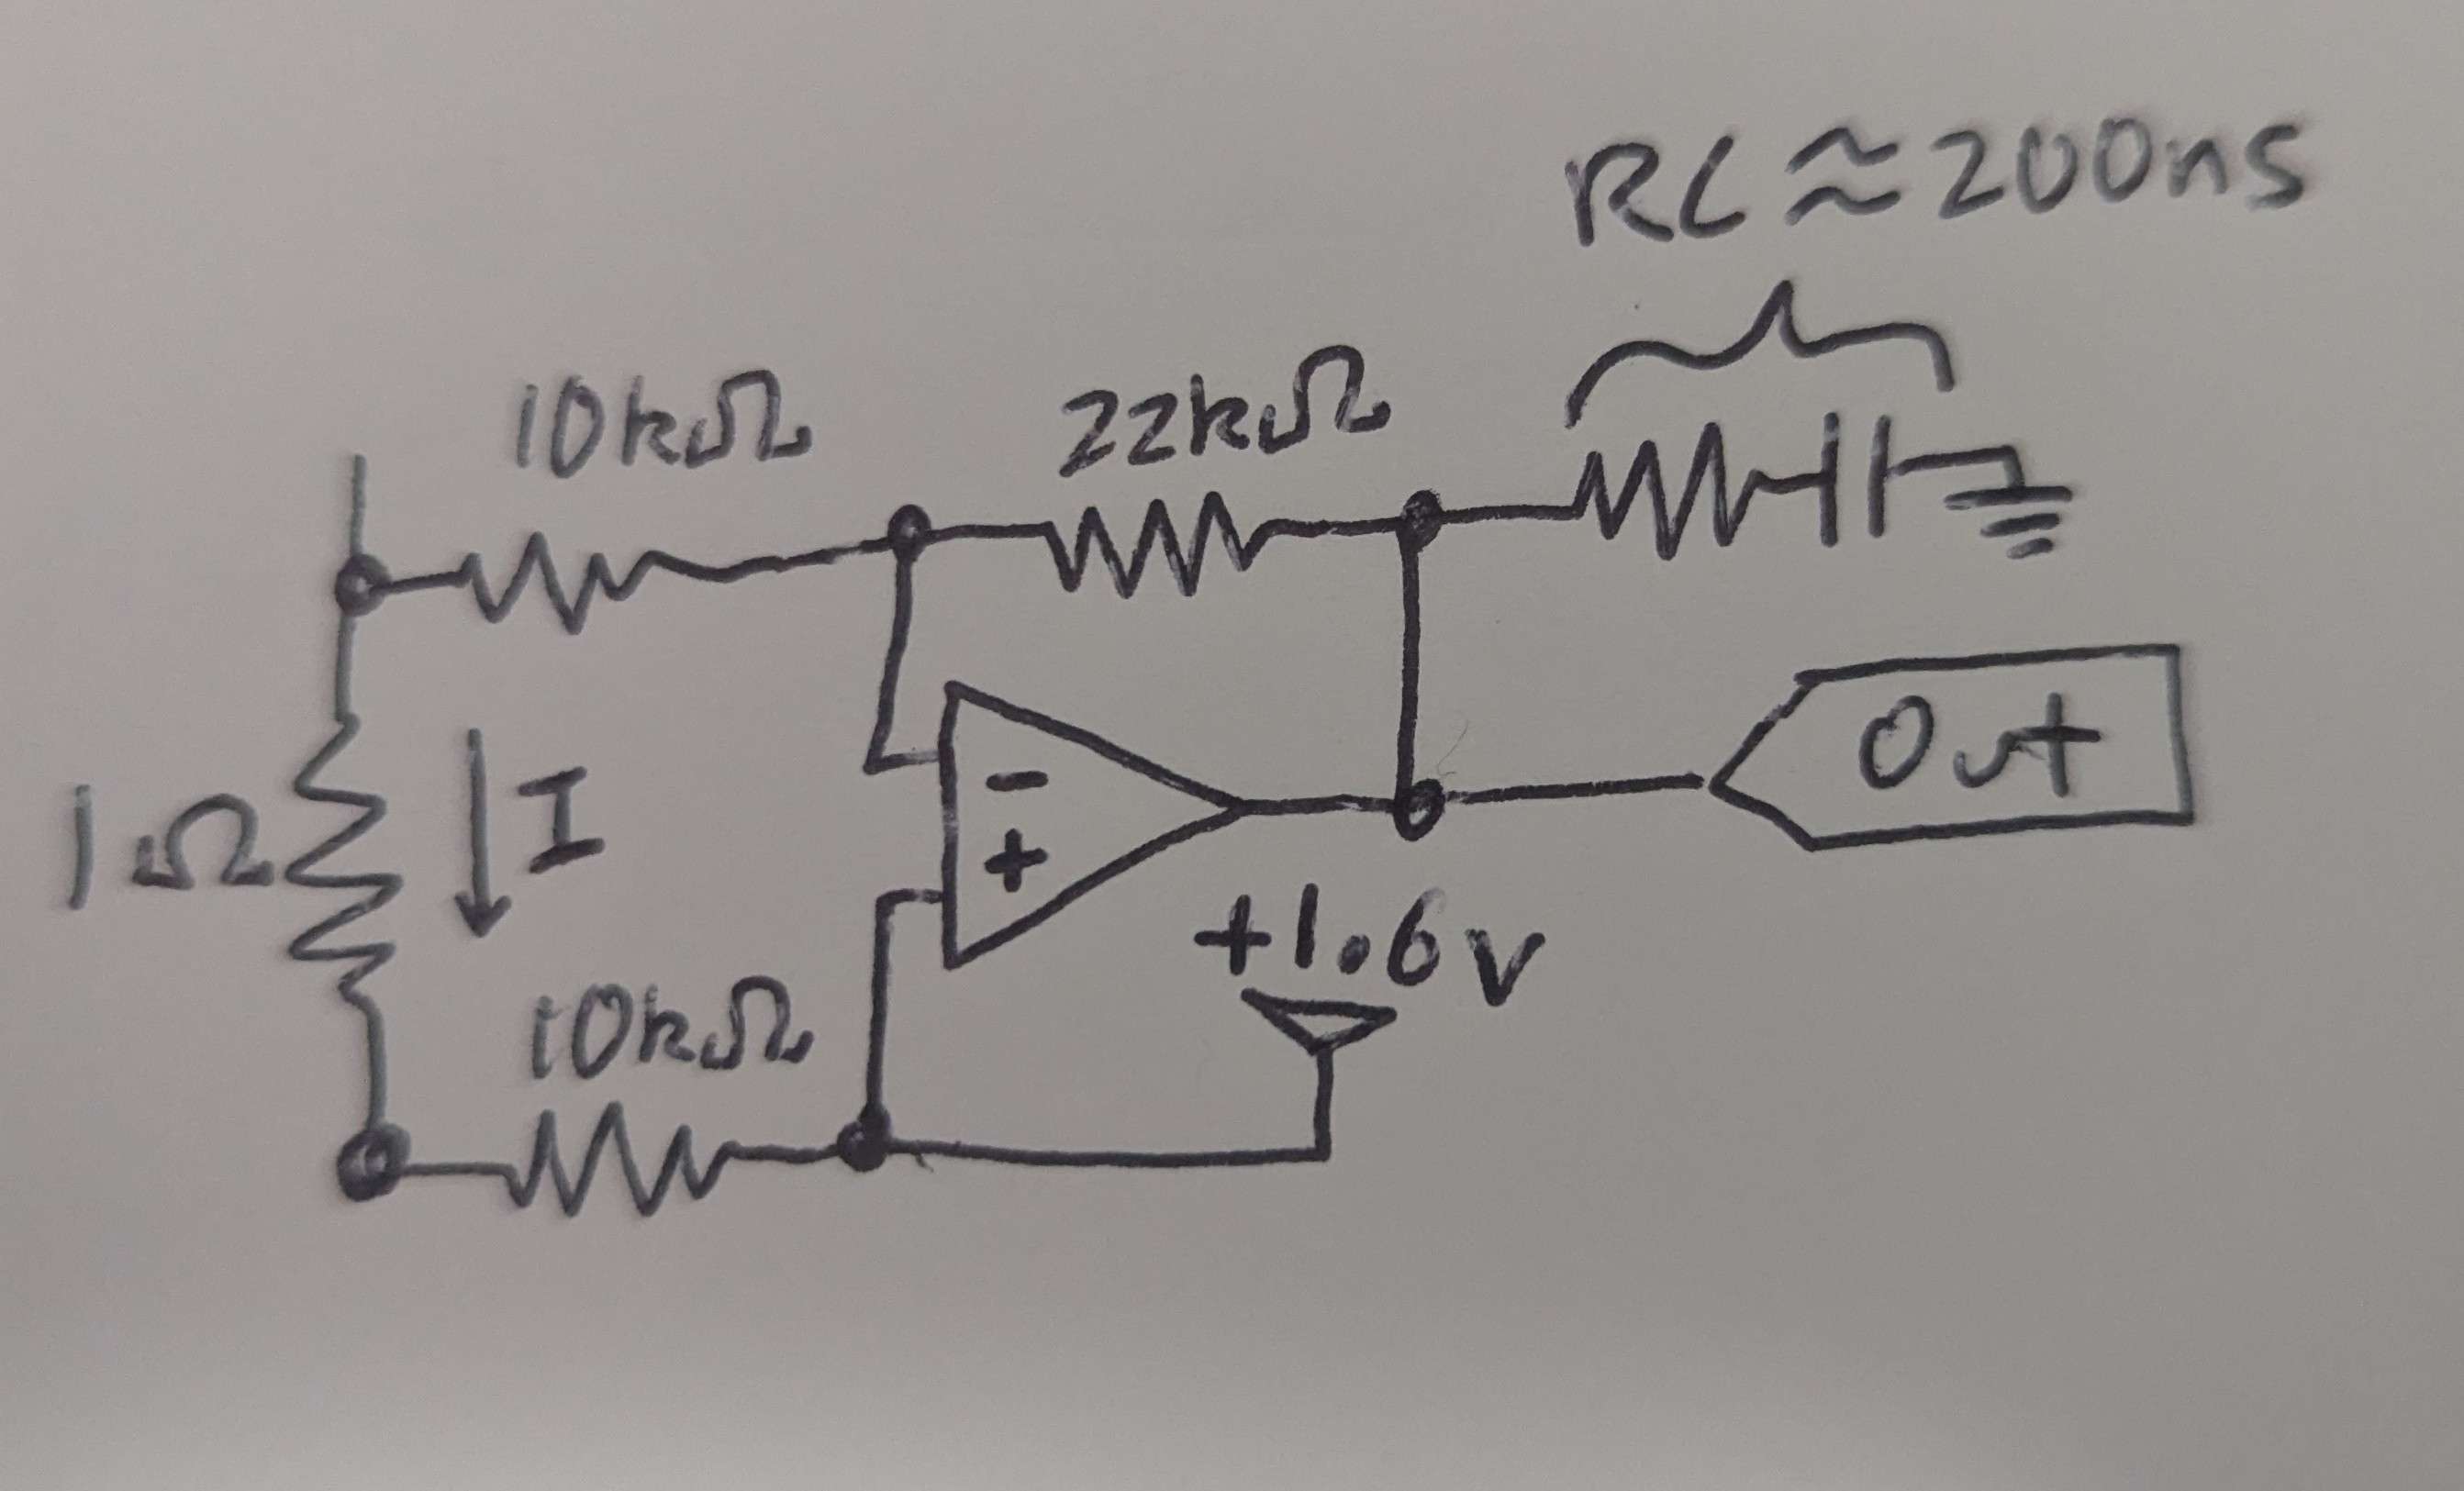 RC ≈ 200ns
10kΩ
22kΩ
1Ω
I
-
+
Out
+1.6V
10kΩ